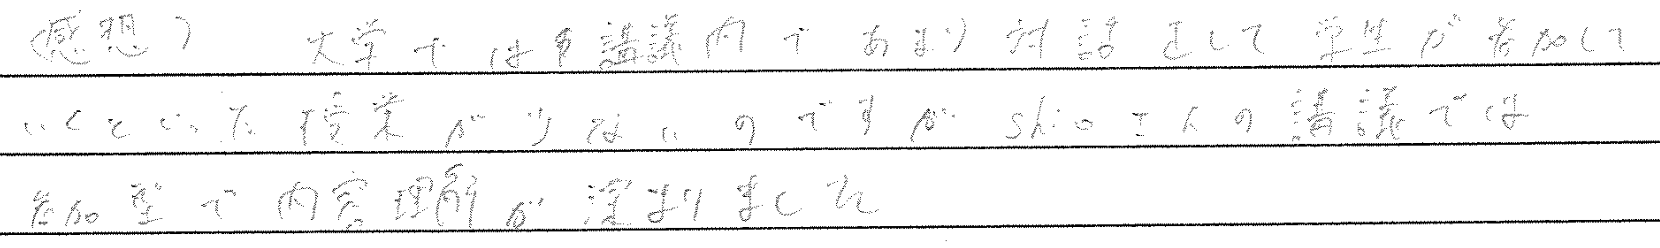 (感想) 大学では講議内であまり対話をして学生が参加して
いくといった授業が少ないのですがshioさんの講議では
参加型で内容理解が深まりました